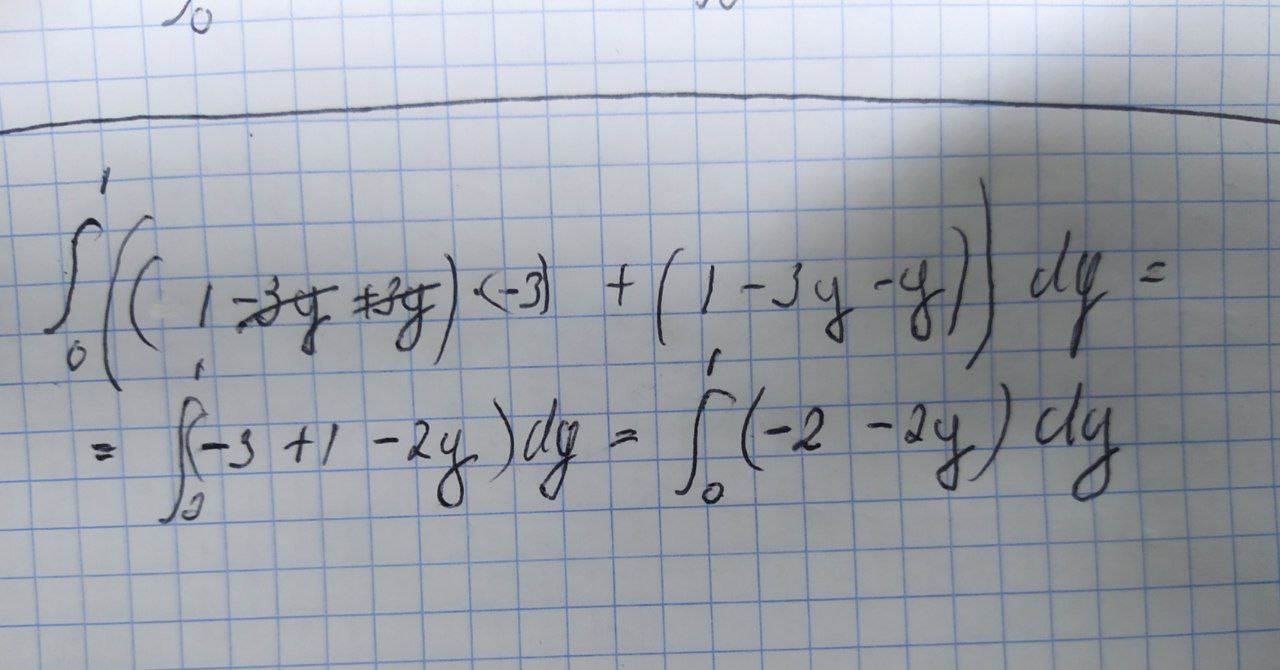 ∫₀¹ ((1 - 3y + 3y) · (-3) + (1 - 3y - y)) dy =
= ∫₀¹ (-3 + 1 - 2y) dy = ∫₀¹ (-2 - 2y) dy